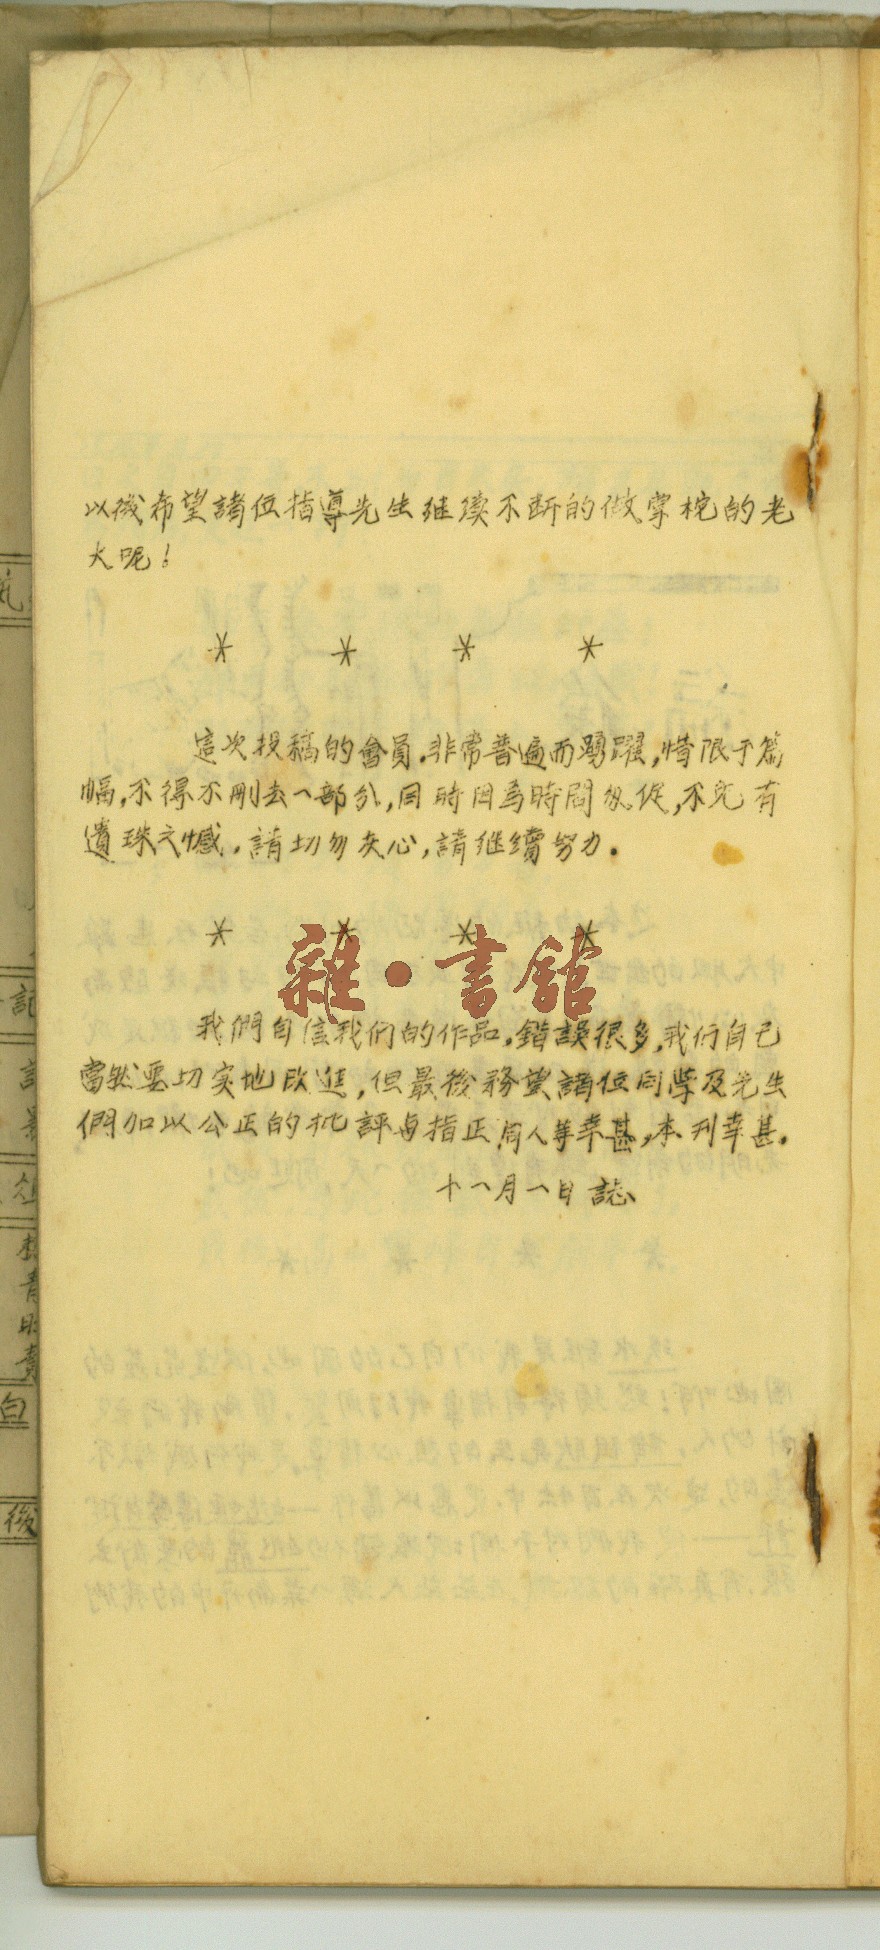 以後希望諸位指導先生继续不断的做掌柁的老
大呢！
* * * *
這次投稿的會員,非常普遍而踴躍,惜限于篇
幅,不得不刪去一部分,同時因為時間匆促,不免有
遺珠之憾,請切勿灰心,請继續努力.
* * * *
雜·書館
我們自信我们的作品,錯誤很多,我们自己
當然要切实地改進,但最後務望諸位同學及先生
們加以公正的批評与指正同人等幸甚,本刊幸甚.
十一月一日誌